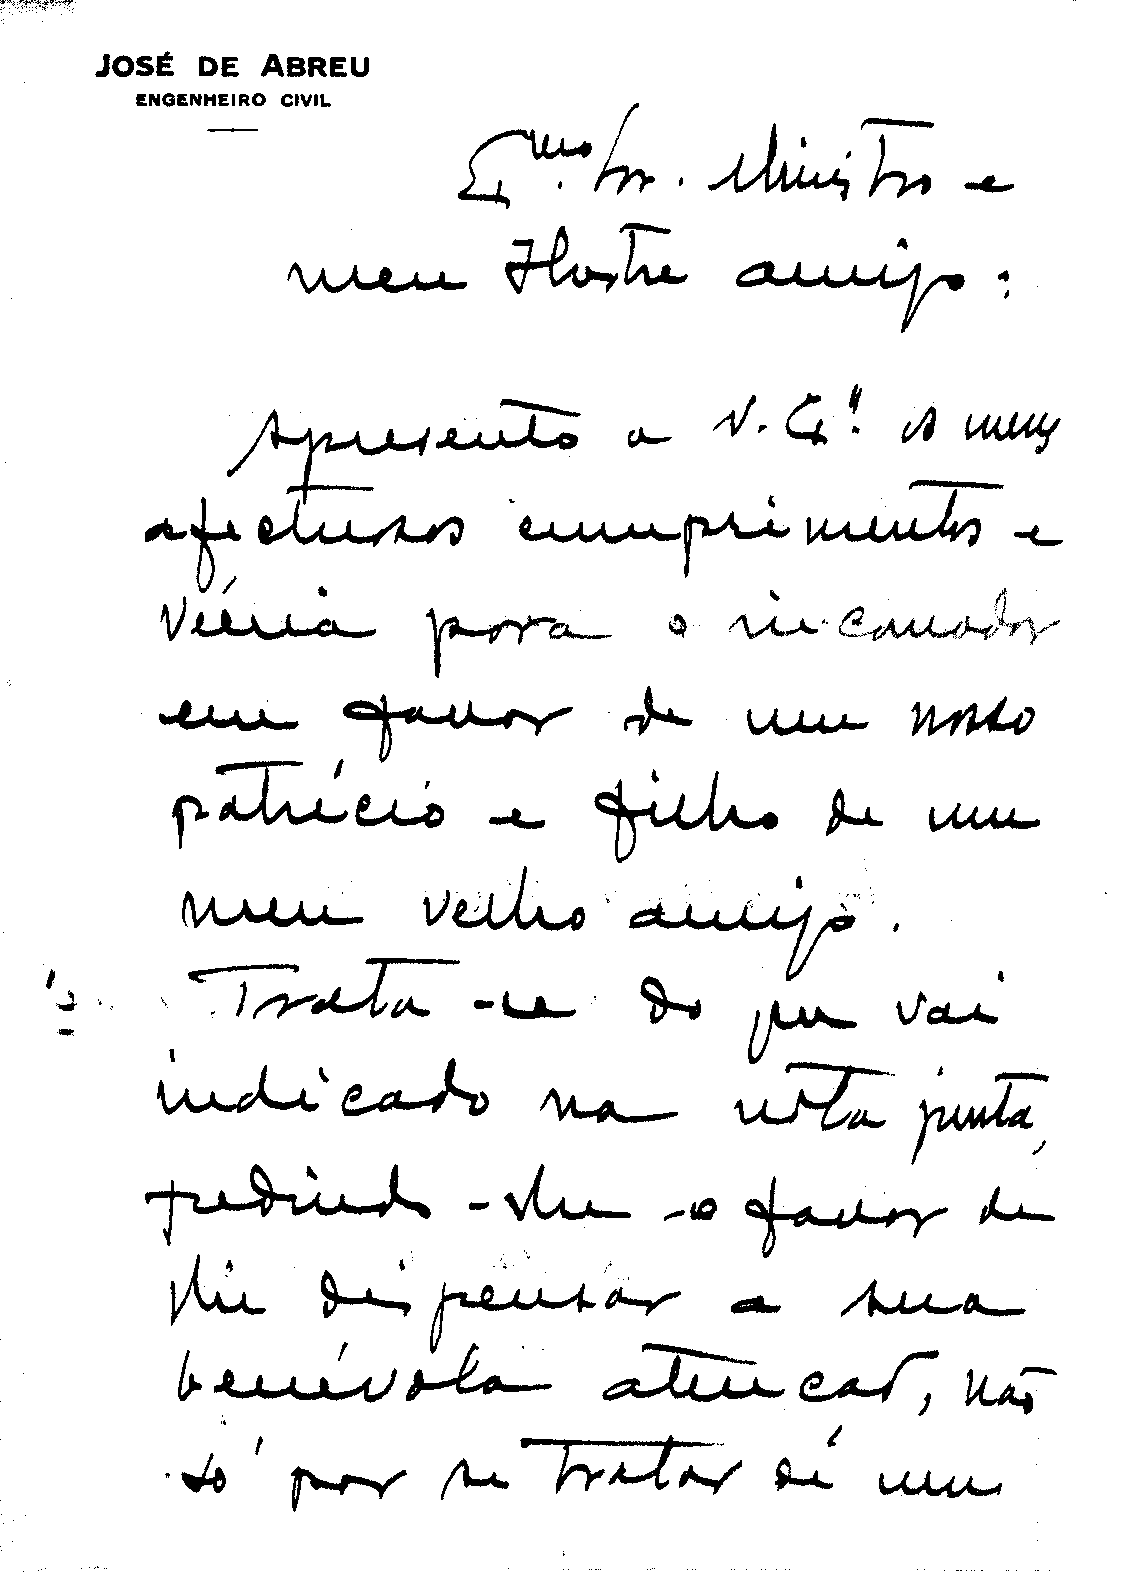 JOSÉ DE ABREU
ENGENHEIRO CIVIL
Exmo. Snr. Ministro e
meu Ilustre amigo:
Apresento a V. Ex.ª os meus
afectuosos cumprimentos e
vénia para o incomodar
em favor de um nosso
patrício e filho de um
meu velho amigo.
Trata-se do que vai
indicado na nota junta,
pedindo-lhe o favor de
lhe dispensar a sua
benévola atenção, não
só por se tratar de um